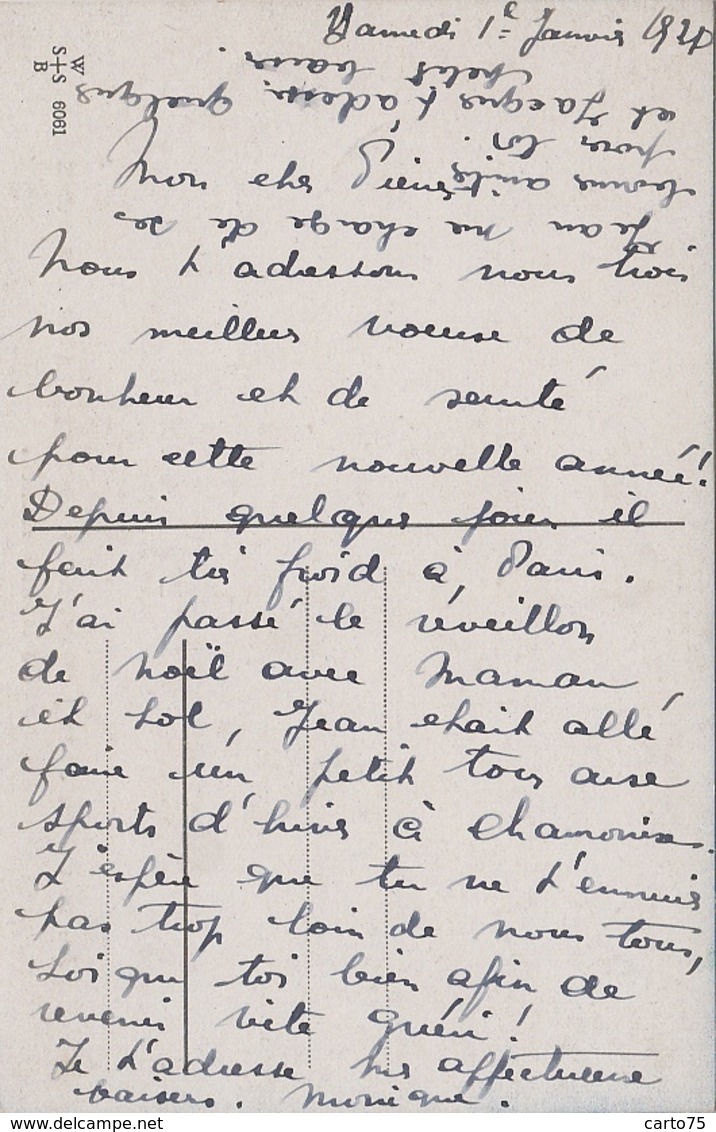 Samedi 1er Janvier
Mon cher Pierre
Nous t'adressons nous trois
nos meilleurs voeux de
bonheur et de santé
pour cette nouvelle année!
Depuis quelque jours il
fait très froid à Paris.
J'ai passé le réveillon
de Noël avec Maman
et Lol, Jean était allé
faire un petit tour aux
sports d'hiver à Chamonix.
J'espère que tu ne t'ennuies
pas trop loin de nous tous,
soigne toi bien afin de
revenir vite guéri!
Je t'adresse mes affectueux
baisers. Monique.
Jean me charge de ses
bonnes amitiés
pour toi.
et Jacques t'adresse quelques
petits baisers.
W
S+S 6061
B
carto75